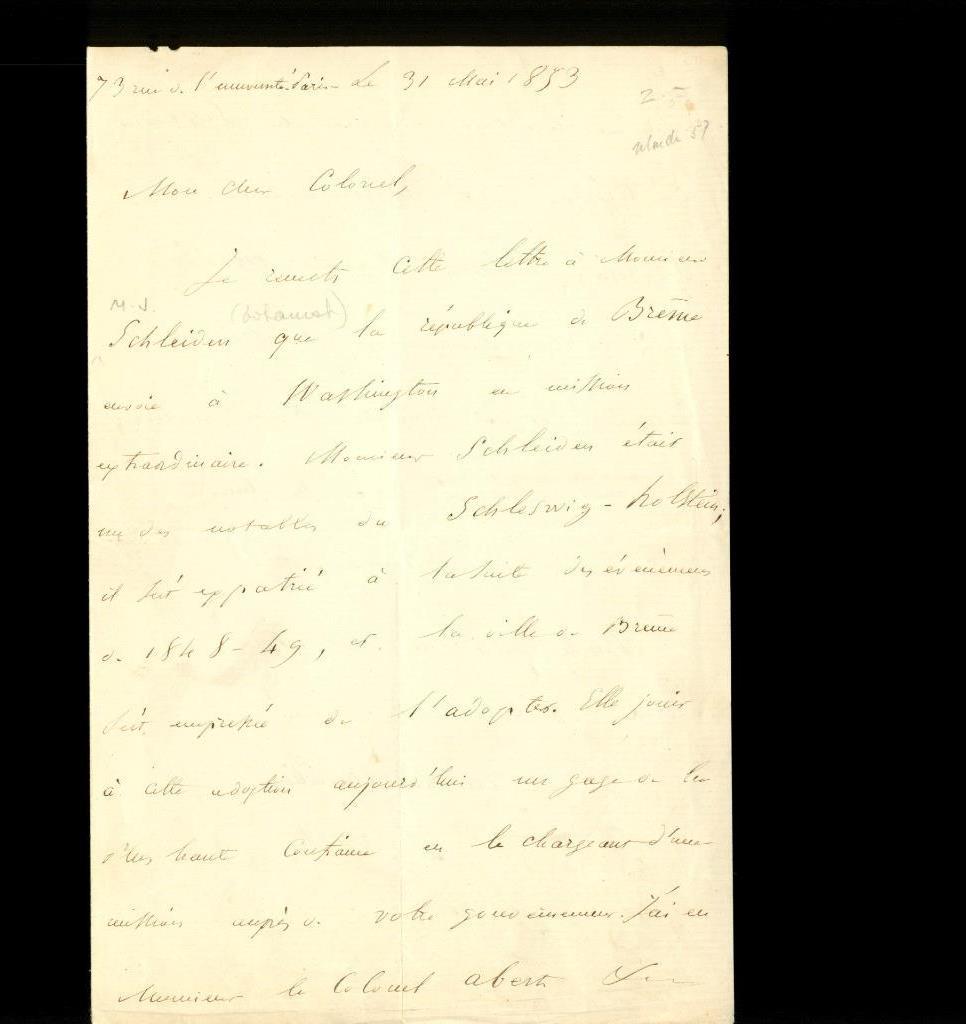 73 rue de l'université. Paris Le 31 Mai 1853
2
Mon cher Colonel,
Je remets cette lettre à Monsieur
M. J.
Schleiden (botanist) que la république de Brême
envoie à Washington en mission
extraordinaire. Monsieur Schleiden était
un des notables du Schleswig-holstein;
il s'est expatrié à la suite des évènemens
de 1848-49, et la ville de Brême
s'est empressée de l'adopter. Elle joint
à cette adoption aujourd'hui un gage de la
plus haute confiance en le chargeant d'une
mission auprès de votre gouvernement. J'ai eu
Monsieur le Colonel Abert